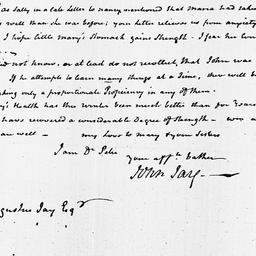 as Sally in a late Letter to nancy mentioned that Maria had taken
well than she was before; your letter relieves us from anxiety
I hope little mary's Stomach gains Strength. I fear her
did not know, or at least do not recollect, that John was
If he attempts to learn many things at a Time, there will be
only a proportionate Proficiency in any of them.
Health has this Winter been much better than for
have recovered a considerable Degree of Strength — was
well — my Love to mary & your Sisters
I am Dr Peter
your afft. Father
John Jay —
Jay Esqr